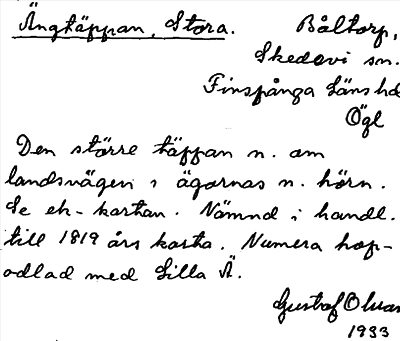 Ängtäppan, Stora. Båltorp,
Skedevi sn.
Finspånga Länshd
Ögl
Den större täppan n. om
landsvägen i ägornas n. hörn.
Se ek-kartan. Nämnd i handl.
till 1819 års karta. Numera hop-
odlad med Lilla Ä.
Gustaf
1933